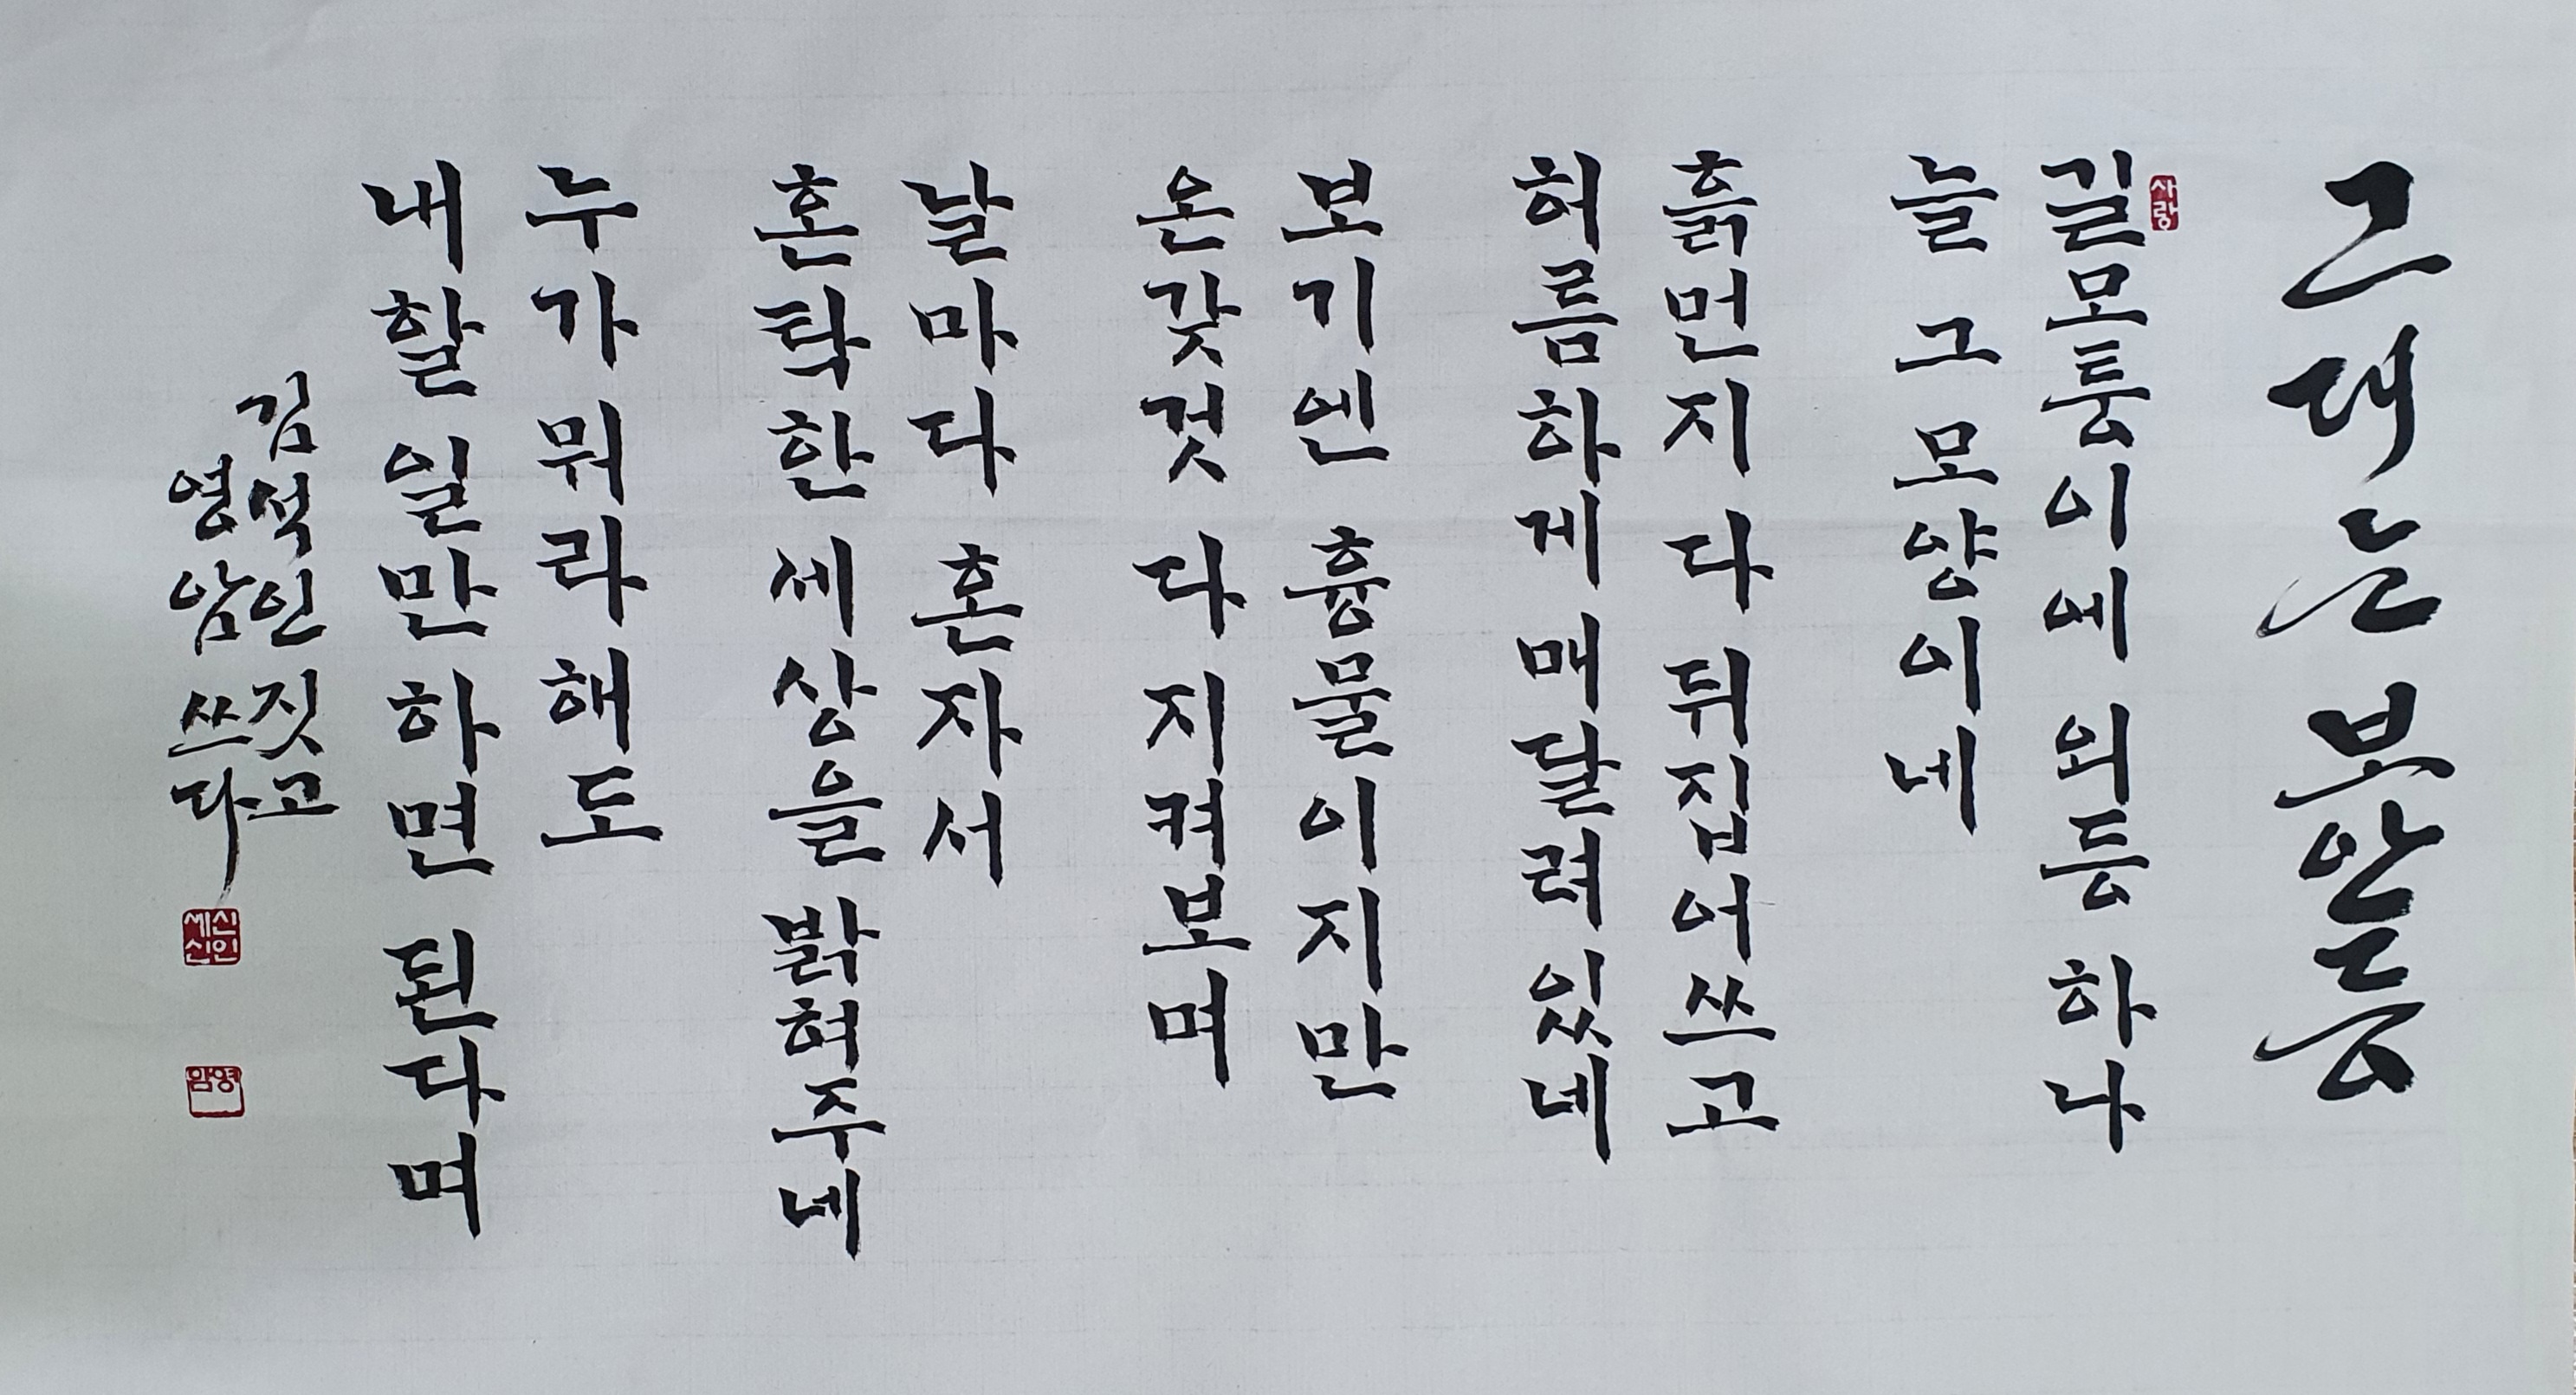 그대는 보안등
사랑
길모퉁이에 외등 하나
늘 그 모양이네
흙먼지 다 뒤집어쓰고
허름하게 매달려 있네
보기엔 흉물이지만
온갖 것 다 지켜보며
날마다 혼자서
혼탁한 세상을 밝혀주네
누가 뭐라 해도
내 할 일만 하면 된다며
김석인 짓고
영암 쓰다
신인
세신
영암